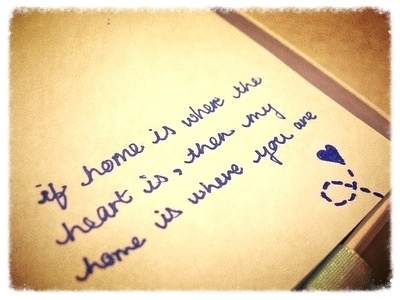 if home is where the
heart is, then my
home is where you are